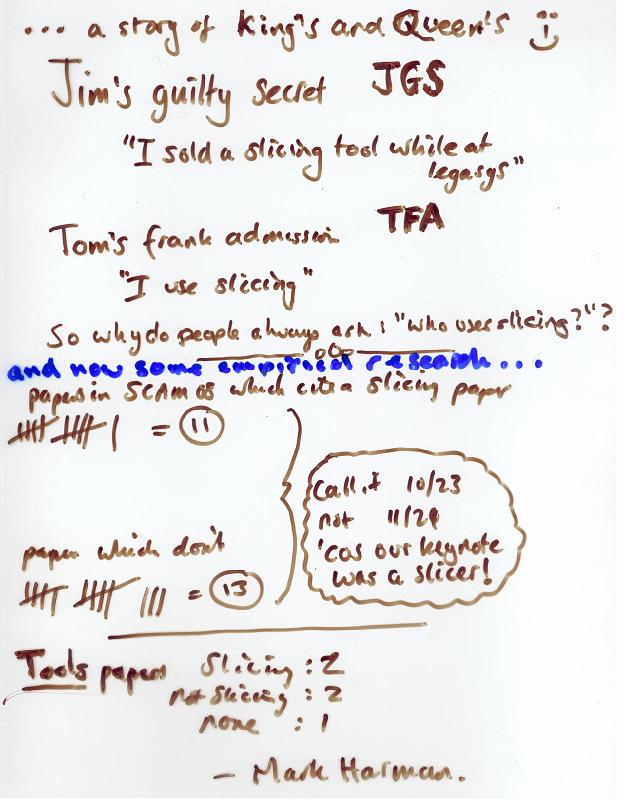 ... a story of King's and Queen's
Jim's guilty secret JGS
"I sold a slicing tool while at
legasys"
Tom's frank admission TFA
"I use slicing"
So why do people always ask: "who uses slicing?"?
and now some empirical research...
papers in SCAM 05 which cite a slicing paper
= 11
Call it 10/23
not 11/24
'cos our keynote
was a slicer!
papers which don't
= 13
Tools papers Slicing : 2
not slicing : 2
none : 1
- Mark Harman.